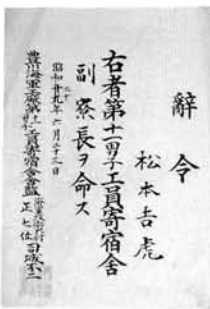 辞令
松本吉虎
右者第十一男子工員寄宿舎
副寮長ヲ命ス
昭和廿年六月二十三日
豊川海軍工廠第十一工員寄宿舎舎監 正七位